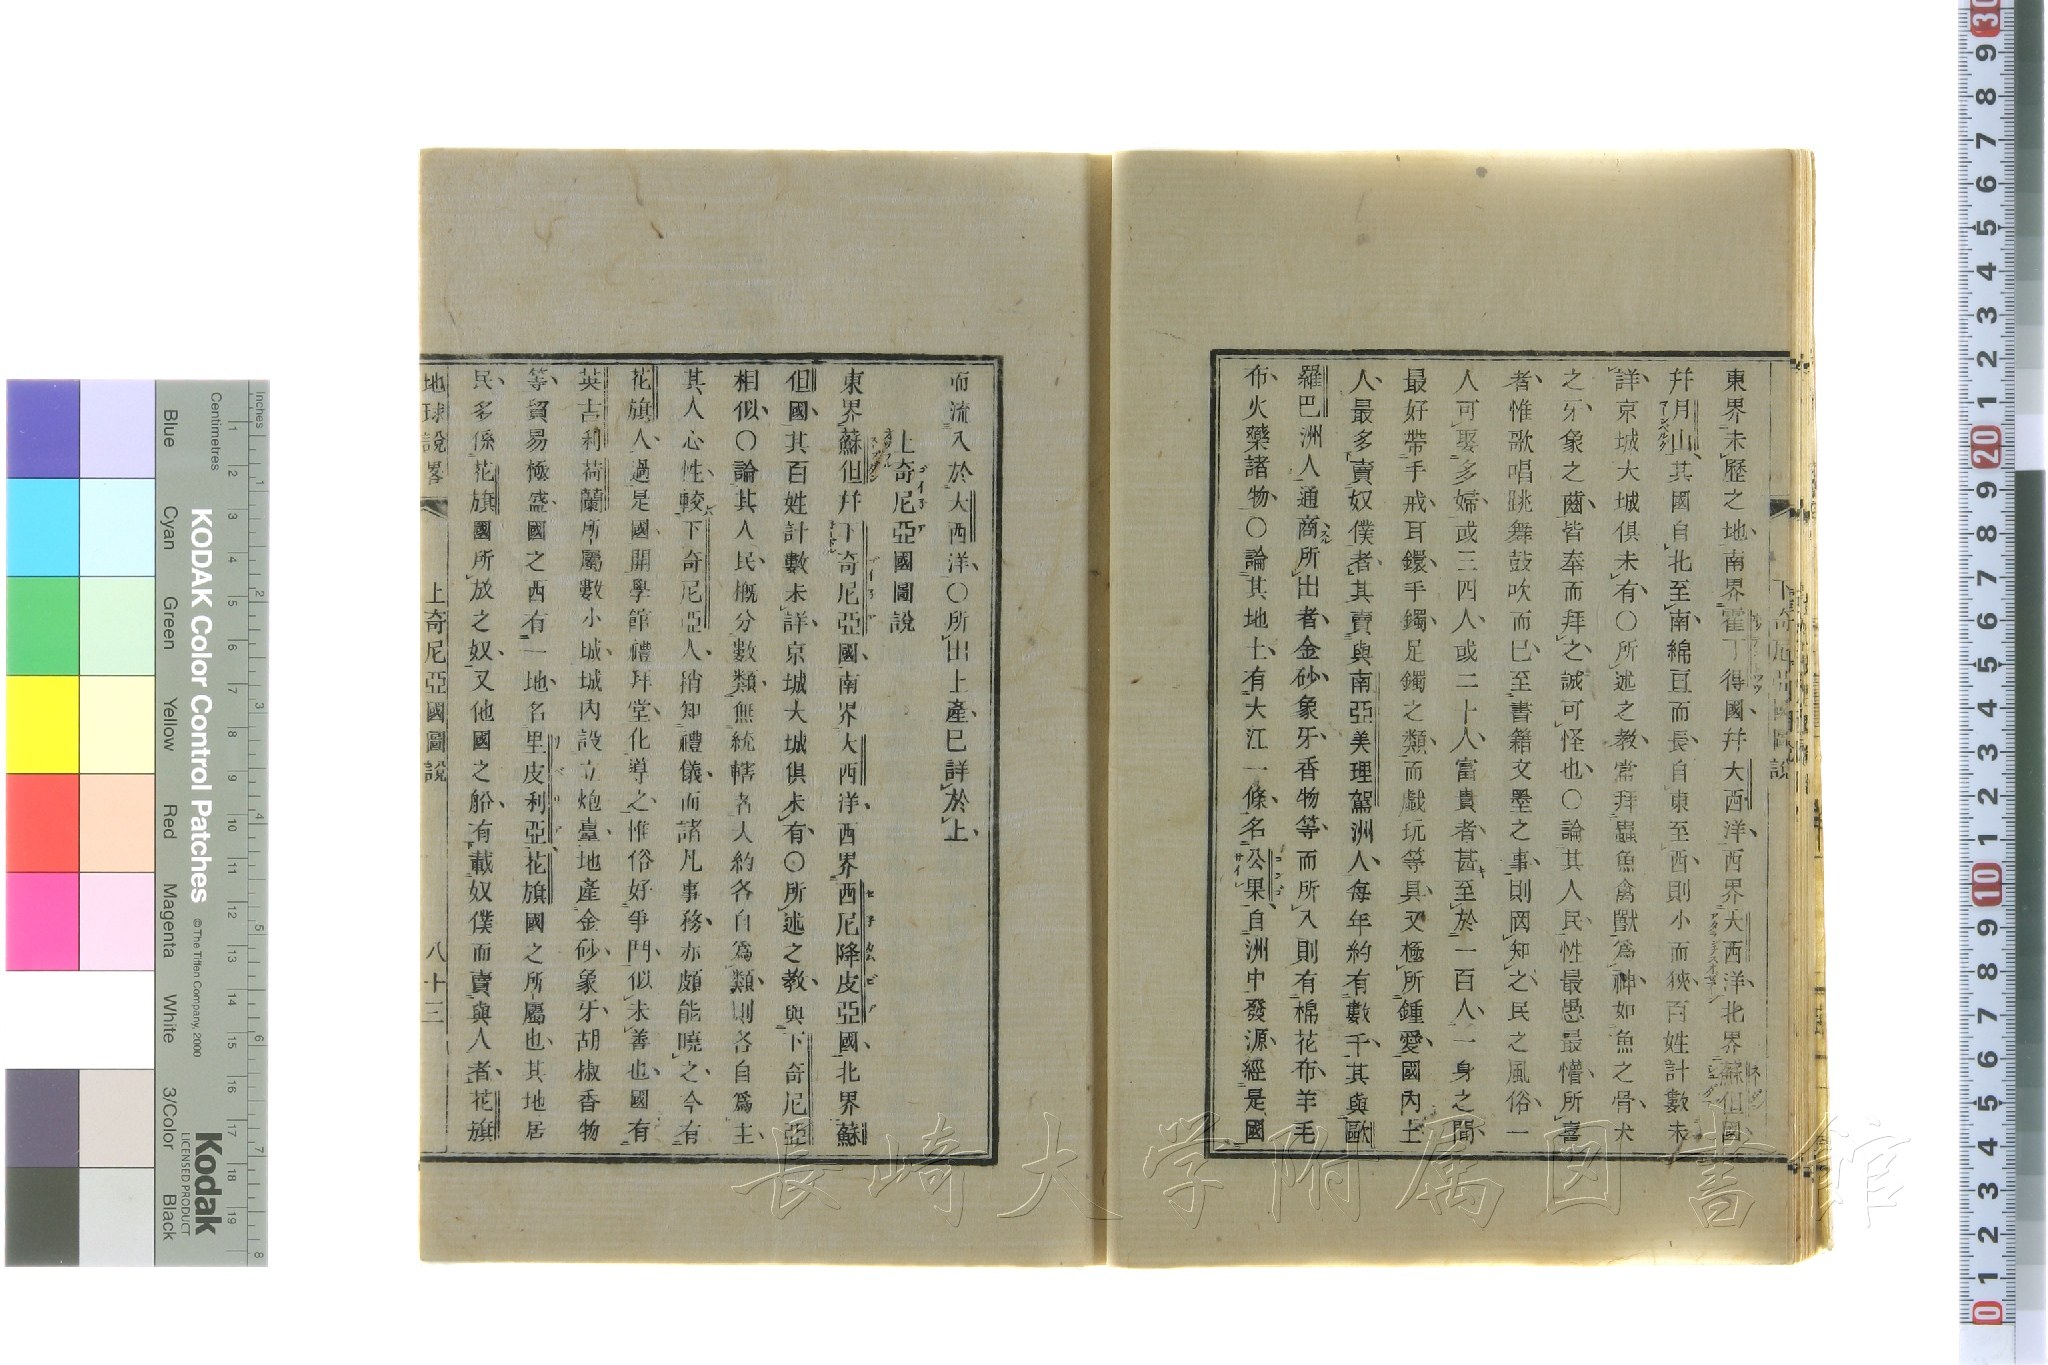 東界未歷之地南界霍丁得國幷大西洋西界大西洋北界蘇但國
幷月山其國自北至南綿亘而長自東至西則小而狹百姓計數未
詳京城大城俱未有〇所述之教常拜蟲魚禽獸爲神如魚之骨犬
之牙象之齒皆奉而拜之誠可怪也〇論其人民性最愚最懵所喜
者惟歌唱跳舞鼓吹而已至書籍文墨之事則罔知之民之風俗一
人可娶多婦或三四人或二十人富貴者甚至於一百人一身之間
最好帶手戒耳鐶手鐲足鐲之類而戲玩等具又極所鍾愛國內土
人最多賣奴僕者其賣與南亞美理駕洲人每年約有數千其與歐
羅巴洲人通商所出者金砂象牙香物等而所入則有棉花布羊毛
布火藥諸物〇論其地土有大江一條名公果自洲中發源經是國
而流入於大西洋〇所出土產已詳於上
上奇尼亞國圖說
東界蘇但幷下奇尼亞國南界大西洋西界西尼降皮亞國北界蘇
但國其百姓計數未詳京城大城俱未有〇所述之教與下奇尼亞
相似〇論其人民概分數類無統轄者大約各自爲類則各自爲主
其人心性較下奇尼亞人稍知禮儀而諸凡事務亦頗能曉之今有
花旗人過是國開學館禮拜堂化導之惟俗好爭鬥似未善也國有
英吉利荷蘭所屬數小城城內設立炮臺地產金砂象牙胡椒香物
等貿易極盛國之西有一地名里皮利亞花旗國之所屬也其地居
民多係花旗國所放之奴又他國之船有載奴僕而賣與人者花旗
地球說畧 上奇尼亞國圖說 八十三
長崎大学附属図書館
KODAK Color Control Patches
© The Tiffen Company, 2000
Kodak
LICENSED PRODUCT
Inches
Centimetres
Blue Cyan Green Yellow Red Magenta White 3/Color Black